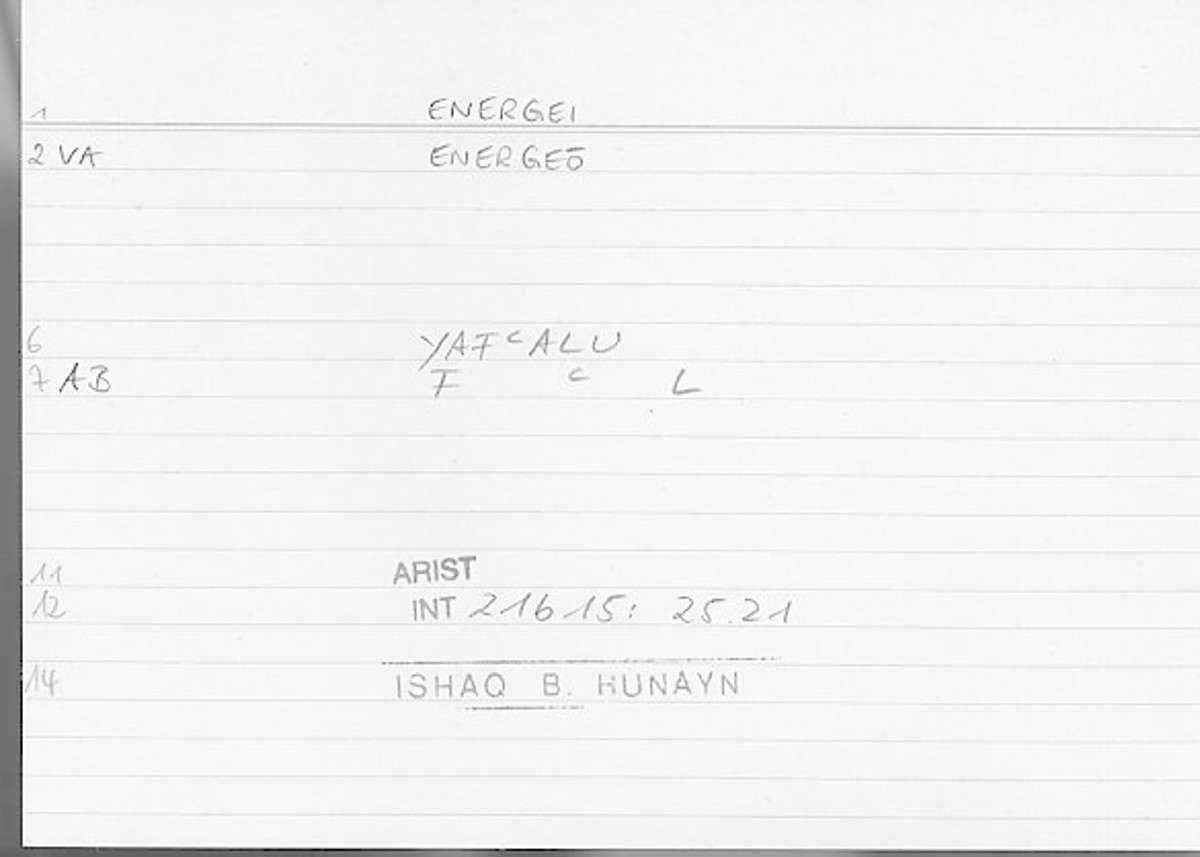 1 ENERGEI
2 VA ENERGEŌ
6 YAFᶜALU
7 AB F ᶜ L
11 ARIST
12 INT 21615: 25.21
14 ISHAQ B. HUNAYN